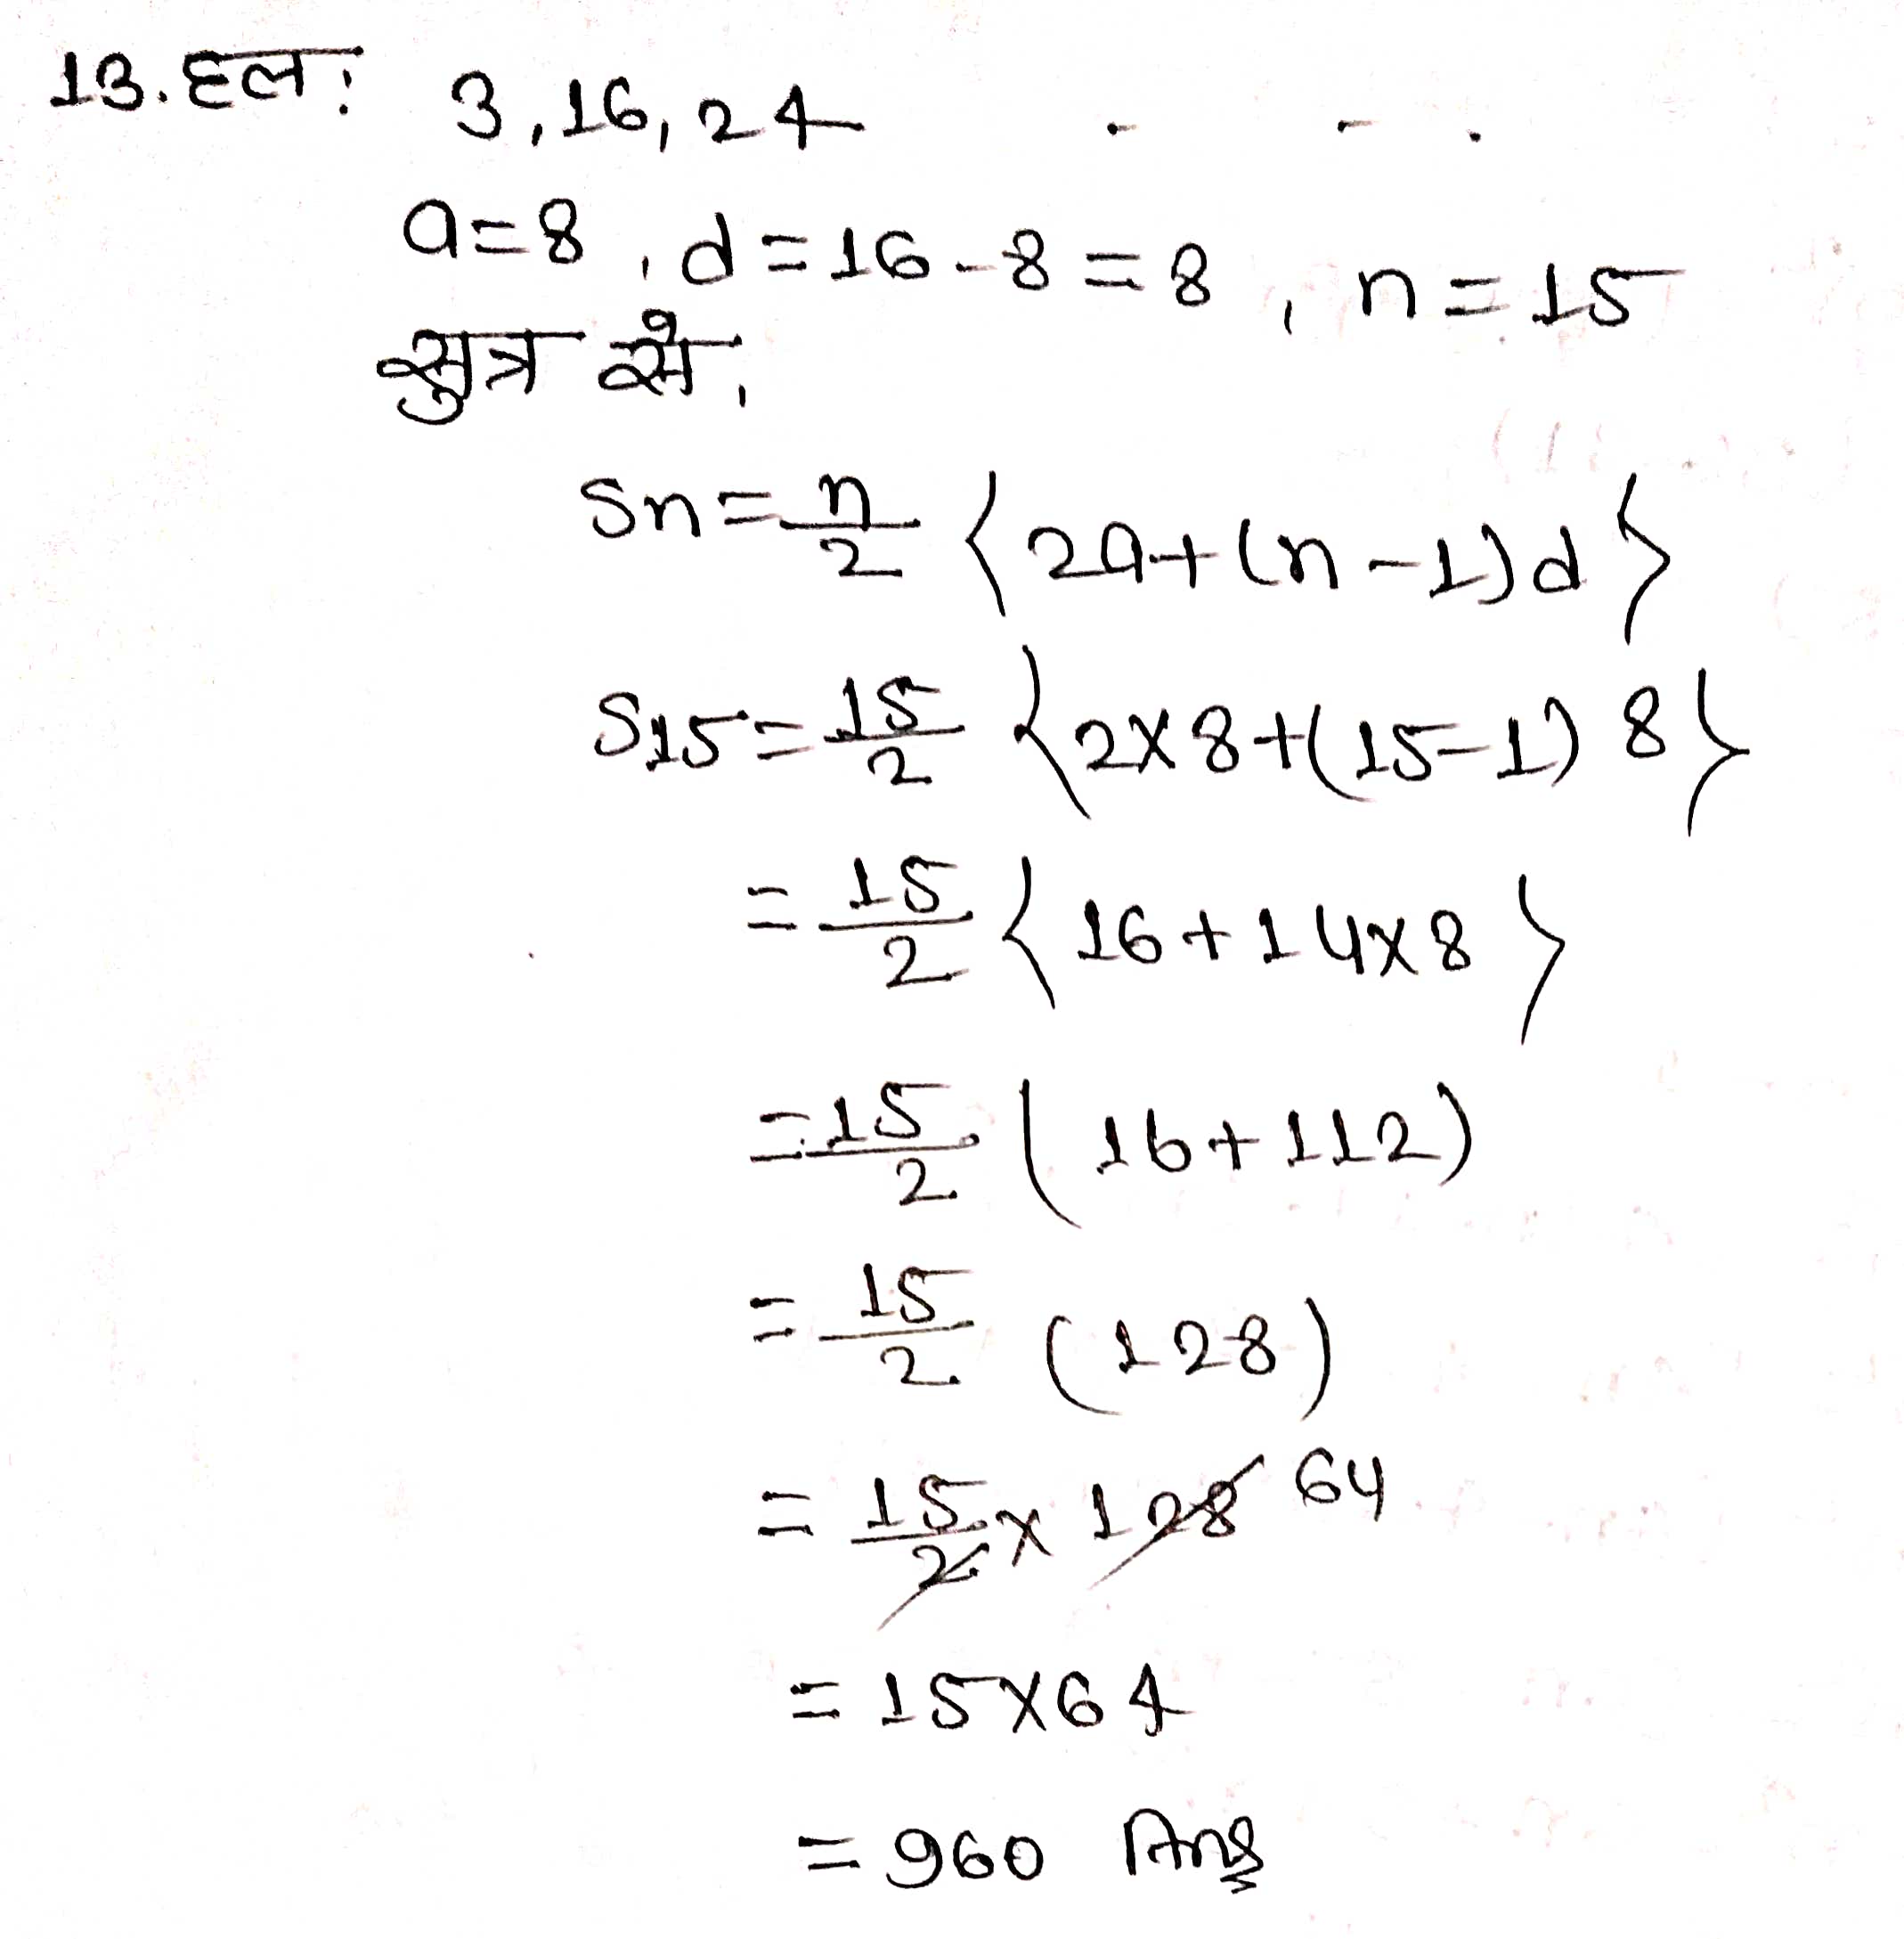 13. हल: 3, 16, 24 . - .
a=8, d=16-8=8, n=15
सुत्र से,
Sn=n/2 {2a+(n-1)d}
S15=15/2 {2x8+(15-1) 8}
=15/2 {16+14x8}
=15/2 (16+112)
=15/2 (128)
=15/2 x 128 64
=15x64
=960 Ans